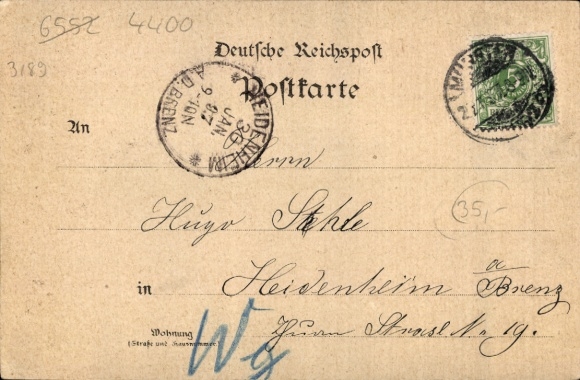 6552 4400
3189
Deutsche Reichspost
Postkarte
HEIDENHEIM
A.D. BRENZ.
9-10N
JAN
97
30
MÜNSTER
An
Herrn
Hugo Stehle
35,-
in Heidenheim a/Brenz
Wohnung
(Straße und Hausnummer)
Thurn Strasse No 19.
Wg